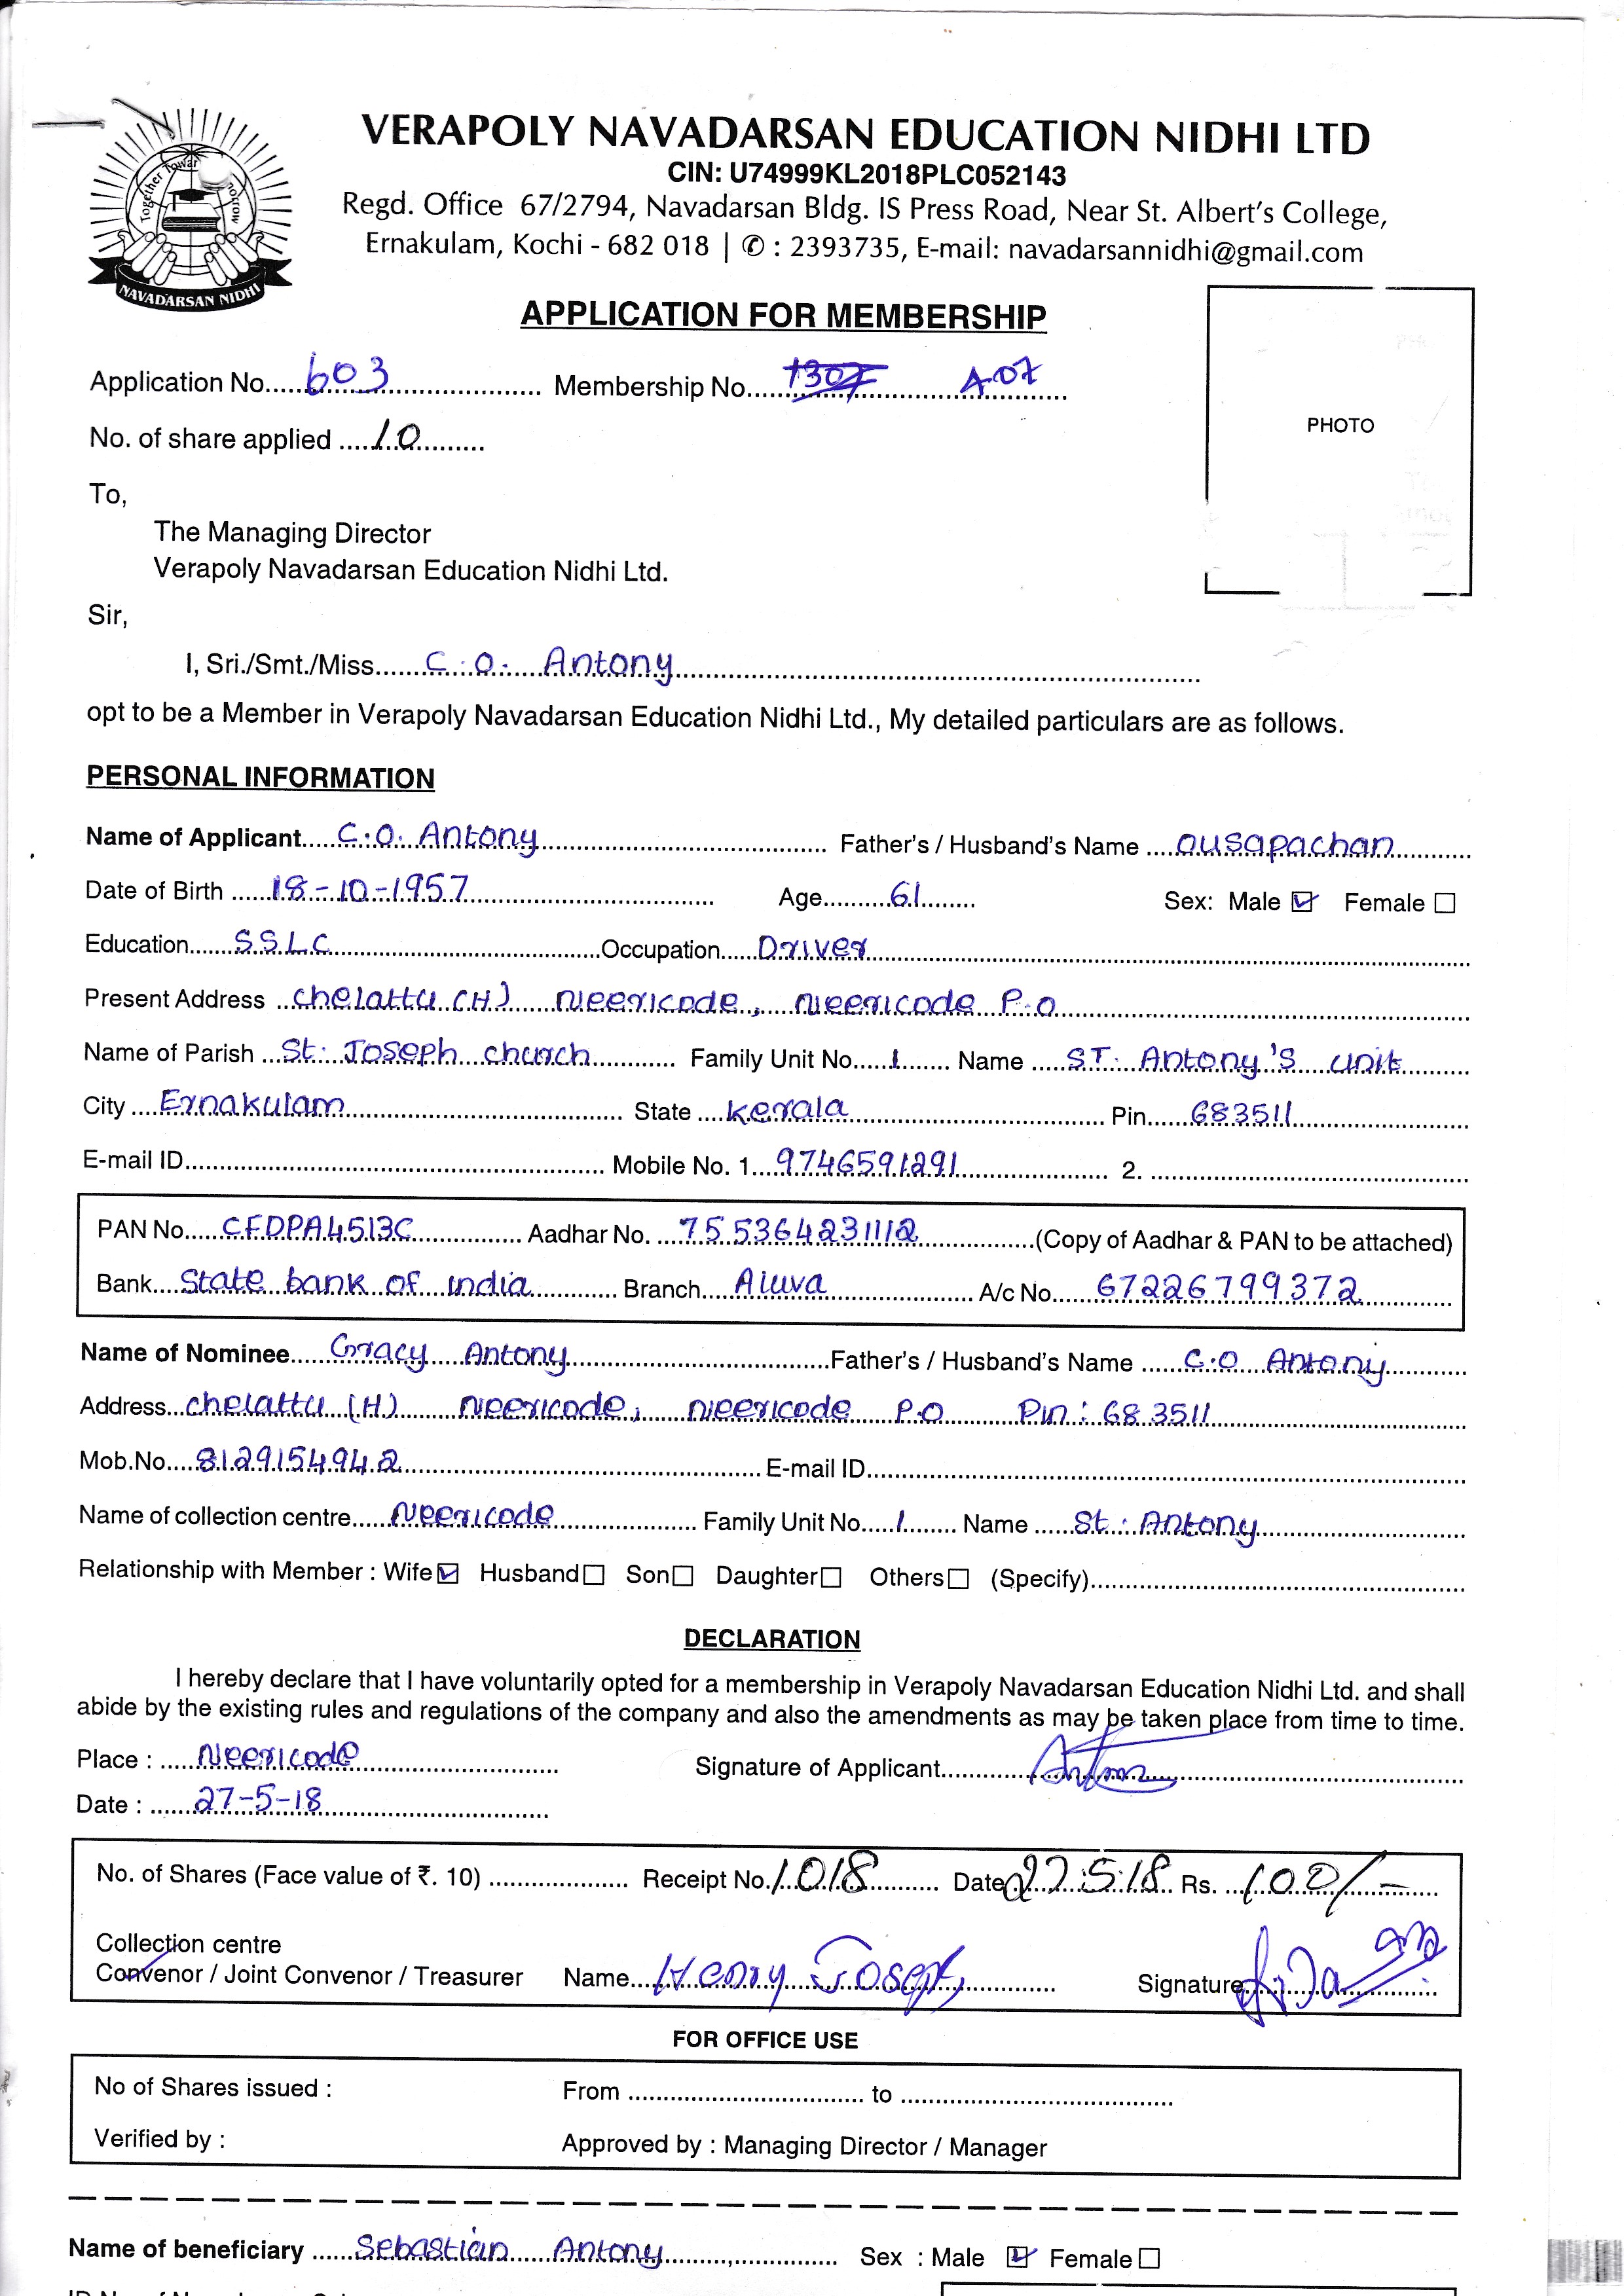 VERAPOLY NAVADARSAN EDUCATION NIDHI LTD
CIN: U74999KL2018PLC052143
Regd. Office 67/2794, Navadarsan Bldg. IS Press Road, Near St. Albert's College,
Ernakulam, Kochi - 682 018 | ✆ : 2393735, E-mail: navadarsannidhi@gmail.com
Together Towar
NAVADARSAN NIDHI
APPLICATION FOR MEMBERSHIP
Application No. 603 Membership No. 1307 407
No. of share applied 10
PHOTO
To,
The Managing Director
Verapoly Navadarsan Education Nidhi Ltd.
Sir,
I, Sri./Smt./Miss. C.O. Antony
opt to be a Member in Verapoly Navadarsan Education Nidhi Ltd., My detailed particulars are as follows.
PERSONAL INFORMATION
Name of Applicant C.O. Antony Father's / Husband's Name ousapachan
Date of Birth 18-10-1957 Age 61 Sex: Male ☑ Female ☐
Education SSLC Occupation Driver
Present Address chelattu (H) Neericode, Neericode P.O
Name of Parish St. Joseph church Family Unit No. 1 Name ST. Antony's unit
City Ernakulam State kerala Pin 683511
E-mail ID Mobile No. 1 9746591291 2.
PAN No. CFDPA4513C Aadhar No. 755364231112 (Copy of Aadhar & PAN to be attached)
Bank State bank of india Branch Aluva A/c No. 67226799372
Name of Nominee Gracy Antony Father's / Husband's Name C.O Antony
Address chelattu (H) Neericode, Neericode P.O Pin : 683511
Mob.No. 8129154942 E-mail ID
Name of collection centre Neericode Family Unit No. 1 Name St. Antony
Relationship with Member : Wife ☑ Husband ☐ Son ☐ Daughter ☐ Others ☐ (Specify)
DECLARATION
I hereby declare that I have voluntarily opted for a membership in Verapoly Navadarsan Education Nidhi Ltd. and shall
abide by the existing rules and regulations of the company and also the amendments as may be taken place from time to time.
Place : Neericode Signature of Applicant Antony
Date : 27-5-18
No. of Shares (Face value of ₹. 10) Receipt No. 1018 Date 27.5.18 Rs. 100/-
Collection centre
Convenor / Joint Convenor / Treasurer Name Henry Joseph Signature
FOR OFFICE USE
No of Shares issued : From to
Verified by : Approved by : Managing Director / Manager
Name of beneficiary Sebastian Antony Sex : Male ☑ Female ☐